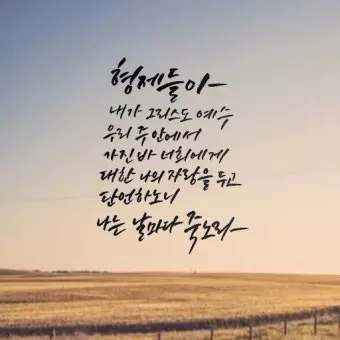 형제들아
내가 그리스도 예수
우리 주 안에서
가진 바 너희에게
대한 나의 자랑을 두고
단언하노니
나는 날마다 죽노라